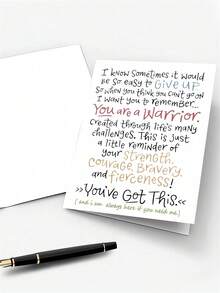 I know sometimes it would
be so easy to GIVE UP
So when you think you can't go on
I want you to remember...
You are a Warrior.
Created through life's many
challenges. This is just
a little reminder of
your strength,
courage, Bravery,
and fierceness!
>>You've Got This.<<
(and i am always here if you need me.)